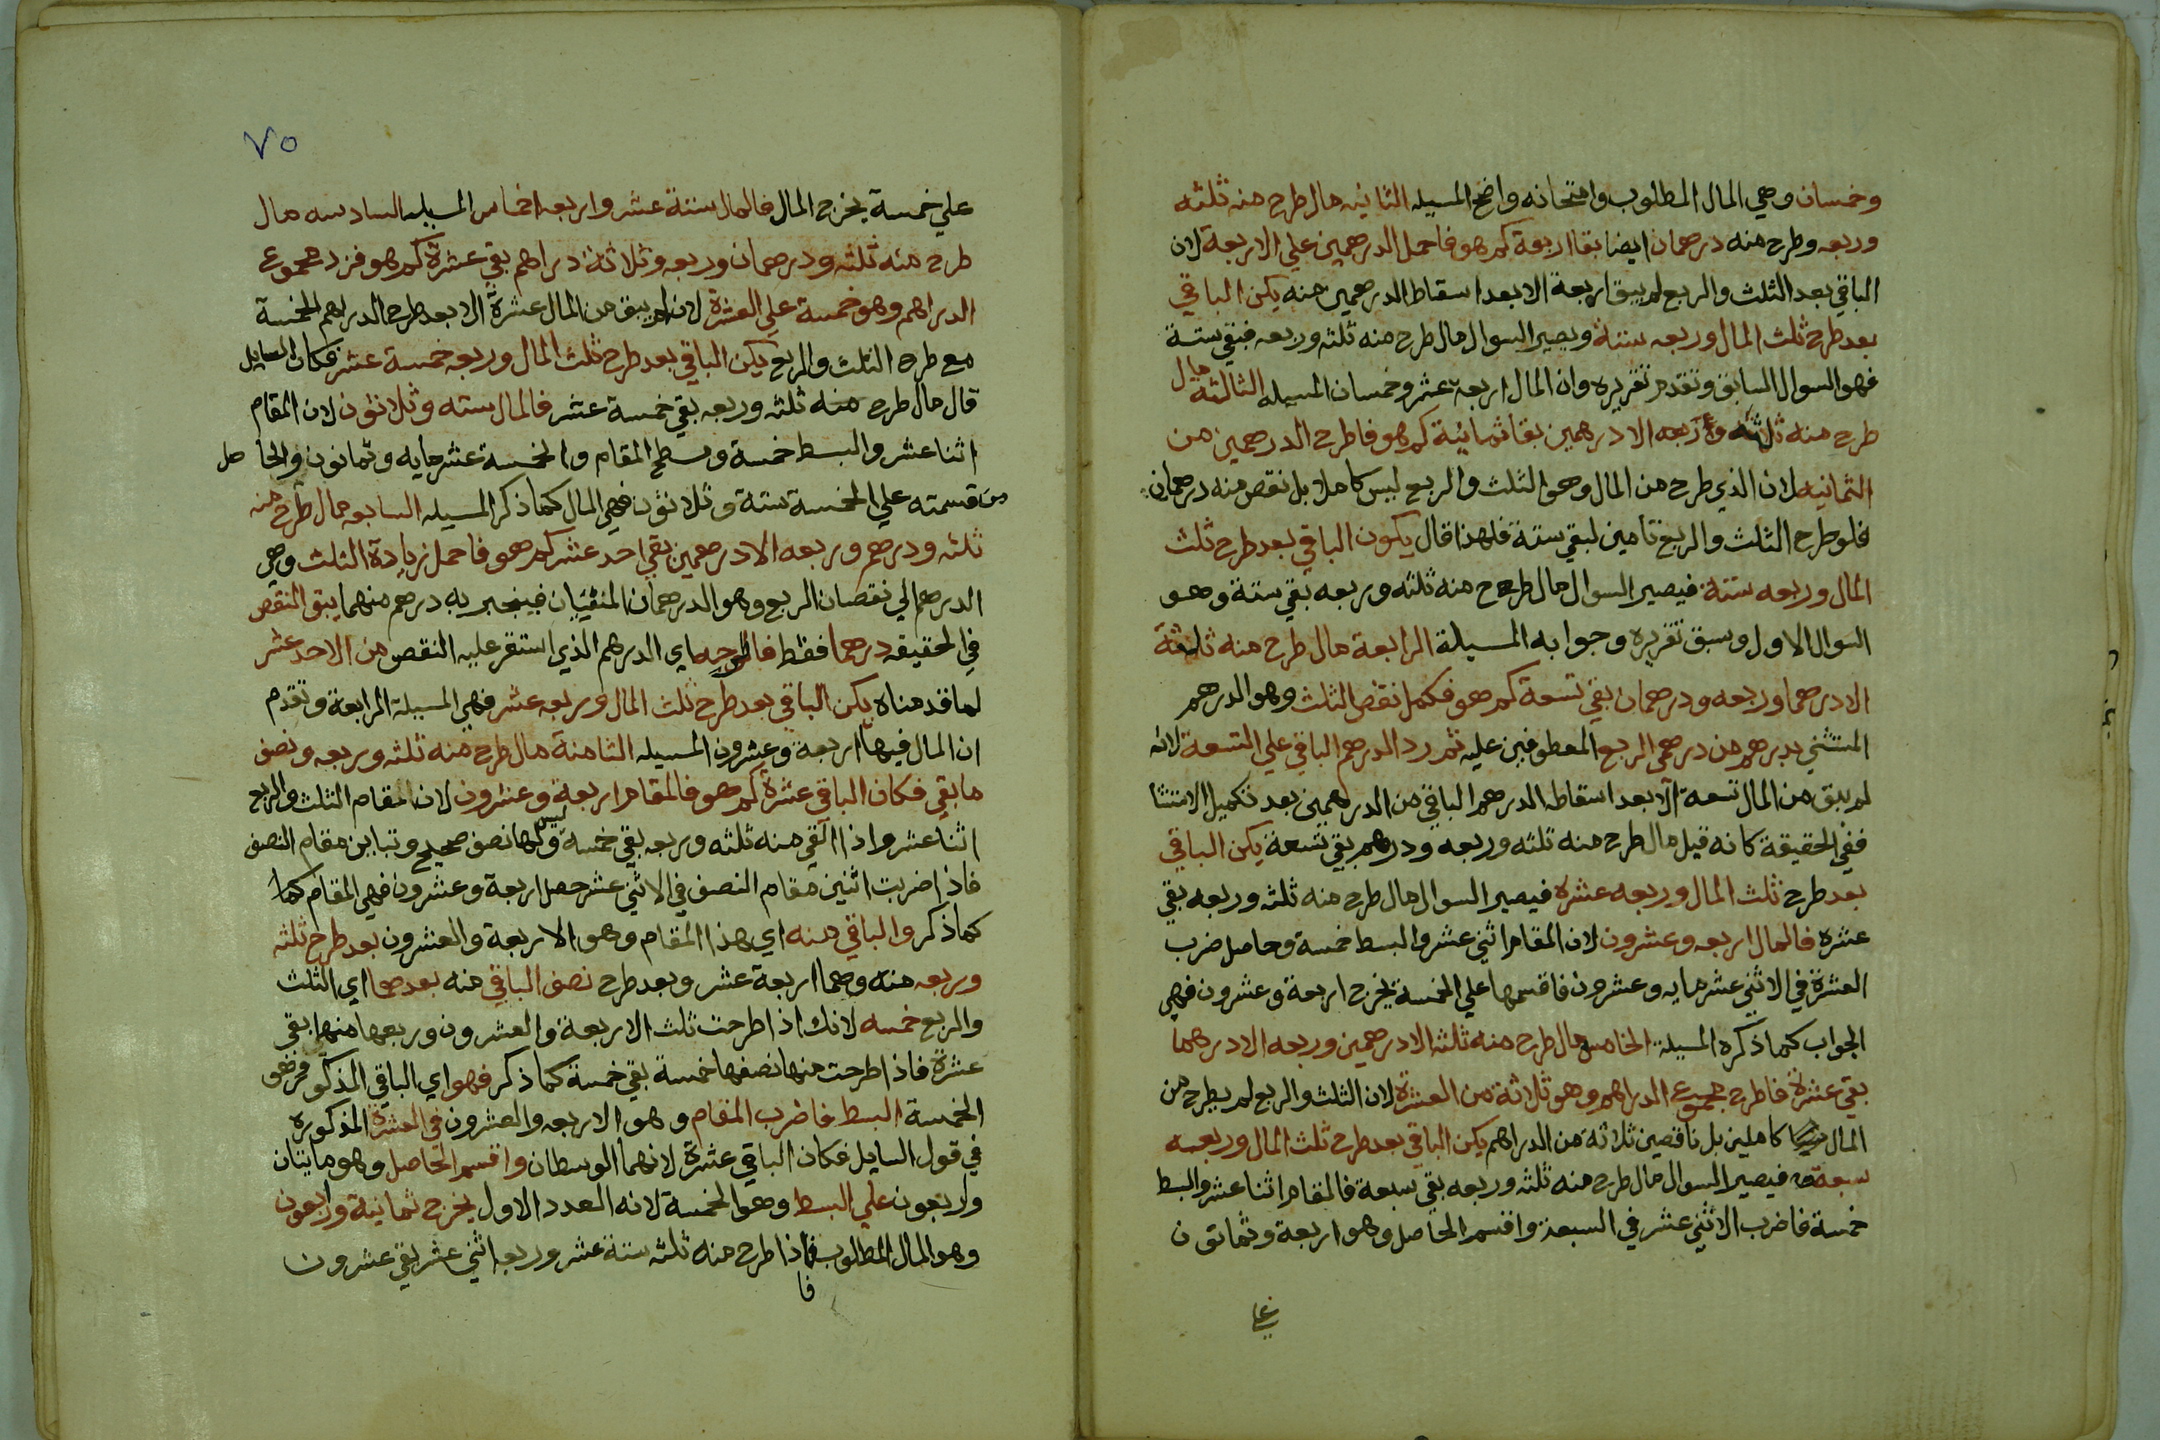 وخمسان وهي المال المطلوب وامتحانه واضح المسيله الثانيه مال طرح منه ثلثه
وربعه وطرح منه درهمان ايضا بقا اربعة كم هو فاحمل الدرهمين علي الاربعة لان
الباقي بعد الثلث والربع لم يبق اربعة الا بعد اسقاط الدرهمين منه يكن الباقي
بعد طرح ثلث المال وربعه ستة ويصير السوال مال طرح منه ثلثه وربعه فبقي ستة
فهو السوال السابق وتقدم تقريره وان المال اربعة عشر وخمسان المسيله الثالثة مال
طرح منه ثلثه وربعه الا درهمين بقا ثمانية كم هو فاطرح الدرهمين من
الثمانيه لان الذي طرح من المال وهو الثلث والربع ليس كاملا بل نقص منه درهمان
فلو طرح الثلث والربع تامين لبقي ستة فلهذا قال يكون الباقي بعد طرح ثلث
المال وربعه ستة فيصير السوال مال طرح منه ثلثه وربعه بقي ستة وهو
السوال الاول وسبق تقريره وجوابه المسيلة الرابعة مال طرح منه ثلثة
الا درهما وربعه ودرهمان بقي تسعة كم هو فكمل نقص الثلث وهو الدرهم
المستثني بدرهم من درهمي الربع المعطوفين عليه ثم رد الدرهم الباقي علي التسعة لانه
لم يبق من المال تسعة الا بعد اسقاطه الدرهم الباقي من الدرهمين بعد تكميل الاستثنا
ففي الحقيقة كانه قيل مال طرح منه ثلثه وربعه ودرهم بقي تسعة يكن الباقي
بعد طرح ثلث المال وربعه عشرة فيصير السوال مال طرح منه ثلثه وربعه بقي
عشره فالمال اربعه وعشرون لان المقام اثني عشر والبسط خمسة وحاصل ضرب
العشرة في الاثني عشر مايه وعشرون فاقسمها علي الخمسة يخرج اربعة وعشرون فهي
الجواب كما ذكره المسيلة الخامس مال طرح منه ثلثه الا درهمين وربعه الا درهما
بقي عشرة فاطرح مجموع الدراهم وهو ثلاثة من العشرة لان الثلث والربع لم يطرح من
المال كاملين بل ناقصين ثلاثة من الدراهم يكن الباقي بعد طرح ثلث المال وربعه
سبعة فيصير السوال مال طرح منه ثلثه وربعه بقي سبعة فالمقام اثنا عشر والبسط
خمسة فاضرب الاثني عشر في السبعة واقسم الحاصل وهو اربعة وثمانون
علي
٧٥
علي خمسة يخرج المال فالمال ستة عشر واربعه اخماس المسيله السادسه مال
طرح منه ثلثه ودرهمان وربعه وثلاثة دراهم بقي عشرة كم هو فزد مجموع
الدراهم وهو خمسة علي العشرة لانه لم يبق من المال عشرة الا بعد طرح الدراهم الخمسة
مع طرح الثلث والربع يكن الباقي بعد طرح ثلث المال وربعه خمسة عشر فكان السايل
قال مال طرح منه ثلثه وربعه بقي خمسة عشر فالمال سته وثلاثون لان المقام
اثنا عشر والبسط خمسة ومسطح المقام والخمسة عشر مايه وثمانون والحاصل
من قسمته علي الخمسة ستة وثلاثون فهي المال كما ذكر المسيله السابعه مال طرح منه
ثلثه ودرهم وربعه الا درهمين بقي احد عشر كم هو فاحمل زيادة الثلث وهي
الدرهم الي نقصان الربع وهو الدرهمان المنفيان فينجبر به درهم منهما يبق النقص
في الحقيقه درهما فقط فالوجه اي الدرهم الذي استقر عليه النقص من الاحد عشر
لما قدمناه يكن الباقي بعد طرح ثلث المال وربعه عشر فهي المسيلة الرابعة وتقدم
ان المال فيها اربعة وعشرون المسيله الثامنة مال طرح منه ثلثه وربعه ونصف
ما بقي فكان الباقي عشرة كم هو فالمقام اربعة وعشرون لان مقام الثلث والربع
اثنا عشر واذا القي منه ثلثه وربعه بقي خمسة وليس لها نصف صحيح وتباين مقام النصف
فاذا ضربت اثنين مقام النصف في الاثني عشر حصل اربعة وعشرون فهي المقام كما
كما ذكر والباقي منه اي هذا المقام وهو الاربعة والعشرون بعد طرح ثلثه
وربعه منه وهما اربعة عشر وبعد طرح نصف الباقي منه بعدهما اي الثلث
والربع خمسه لانك اذا طرحت ثلث الاربعة والعشرون وربعها منها بقي
عشرة فاذا طرحت منها نصفها خمسة بقي خمسة كما ذكر فهو اي الباقي المذكور وهو
الخمسة البسط فاضرب المقام وهو الاربعه والعشرون في العشرة المذكوره
في قول السايل فكان الباقي عشرة لانهما الوسطان واقسم الحاصل وهو مايتان
واربعون علي البسط وهو الخمسة لانه العدد الاول يخرج ثمانية واربعون
وهو المال المطلوب فاذا طرح منه ثلثه ستة عشر وربعه اثني عشر بقي عشرون
فا